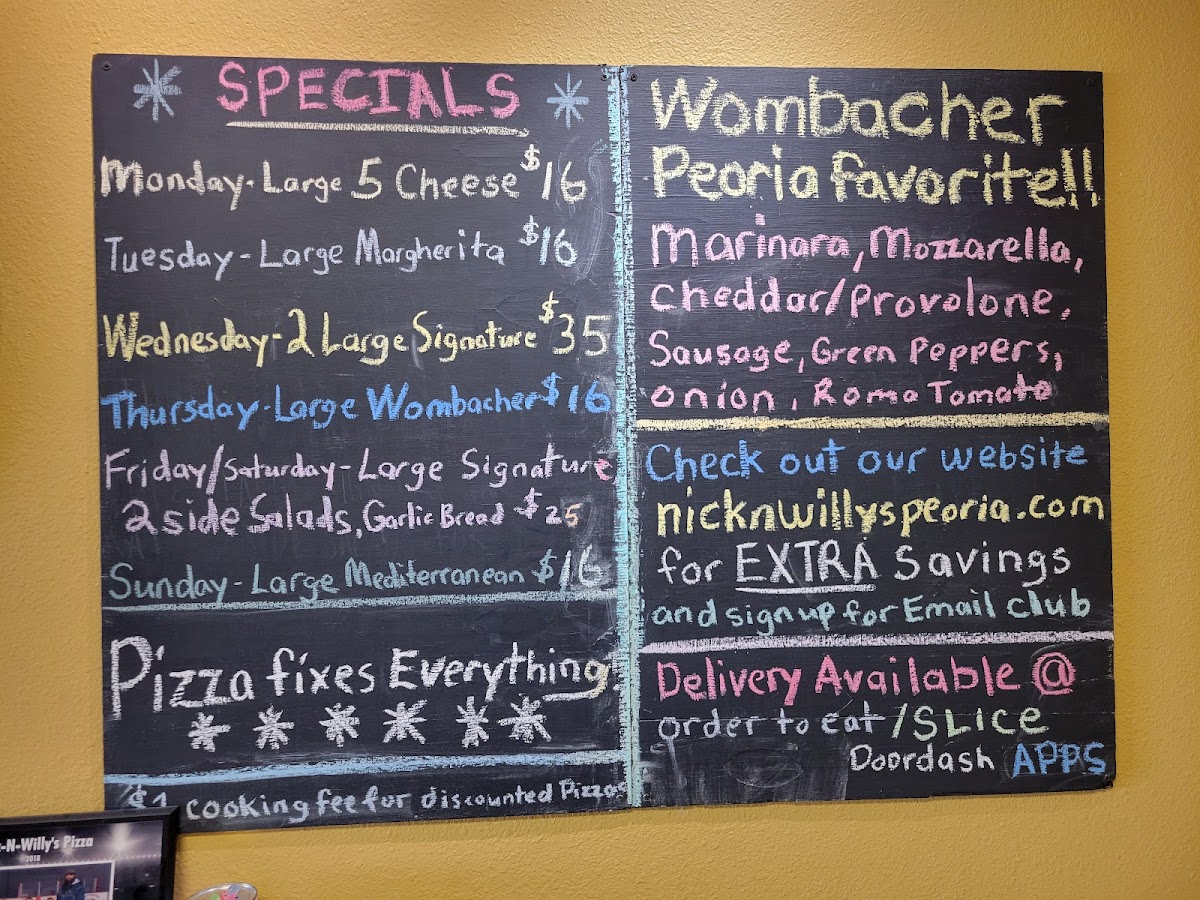 SPECIALS
Monday - Large 5 Cheese $16
Tuesday - Large Margherita $16
Wednesday - 2 Large Signature $35
Thursday - Large Wombacher $16
Friday/Saturday - Large Signature
2 side Salads, Garlic Bread $25
Sunday - Large Mediterranean $16
Pizza fixes Everything!
$1 cooking fee for discounted Pizzas
Wombacher
Peoria favorite!!
Marinara, Mozzarella,
Cheddar/Provolone,
Sausage, Green Peppers,
onion, Roma Tomato
Check out our website
nicknwillyspeoria.com
for EXTRA Savings
and sign up for Email Club
Delivery Available @
order to eat/SLICE
Doordash APPS
-N-Willy's Pizza
2018